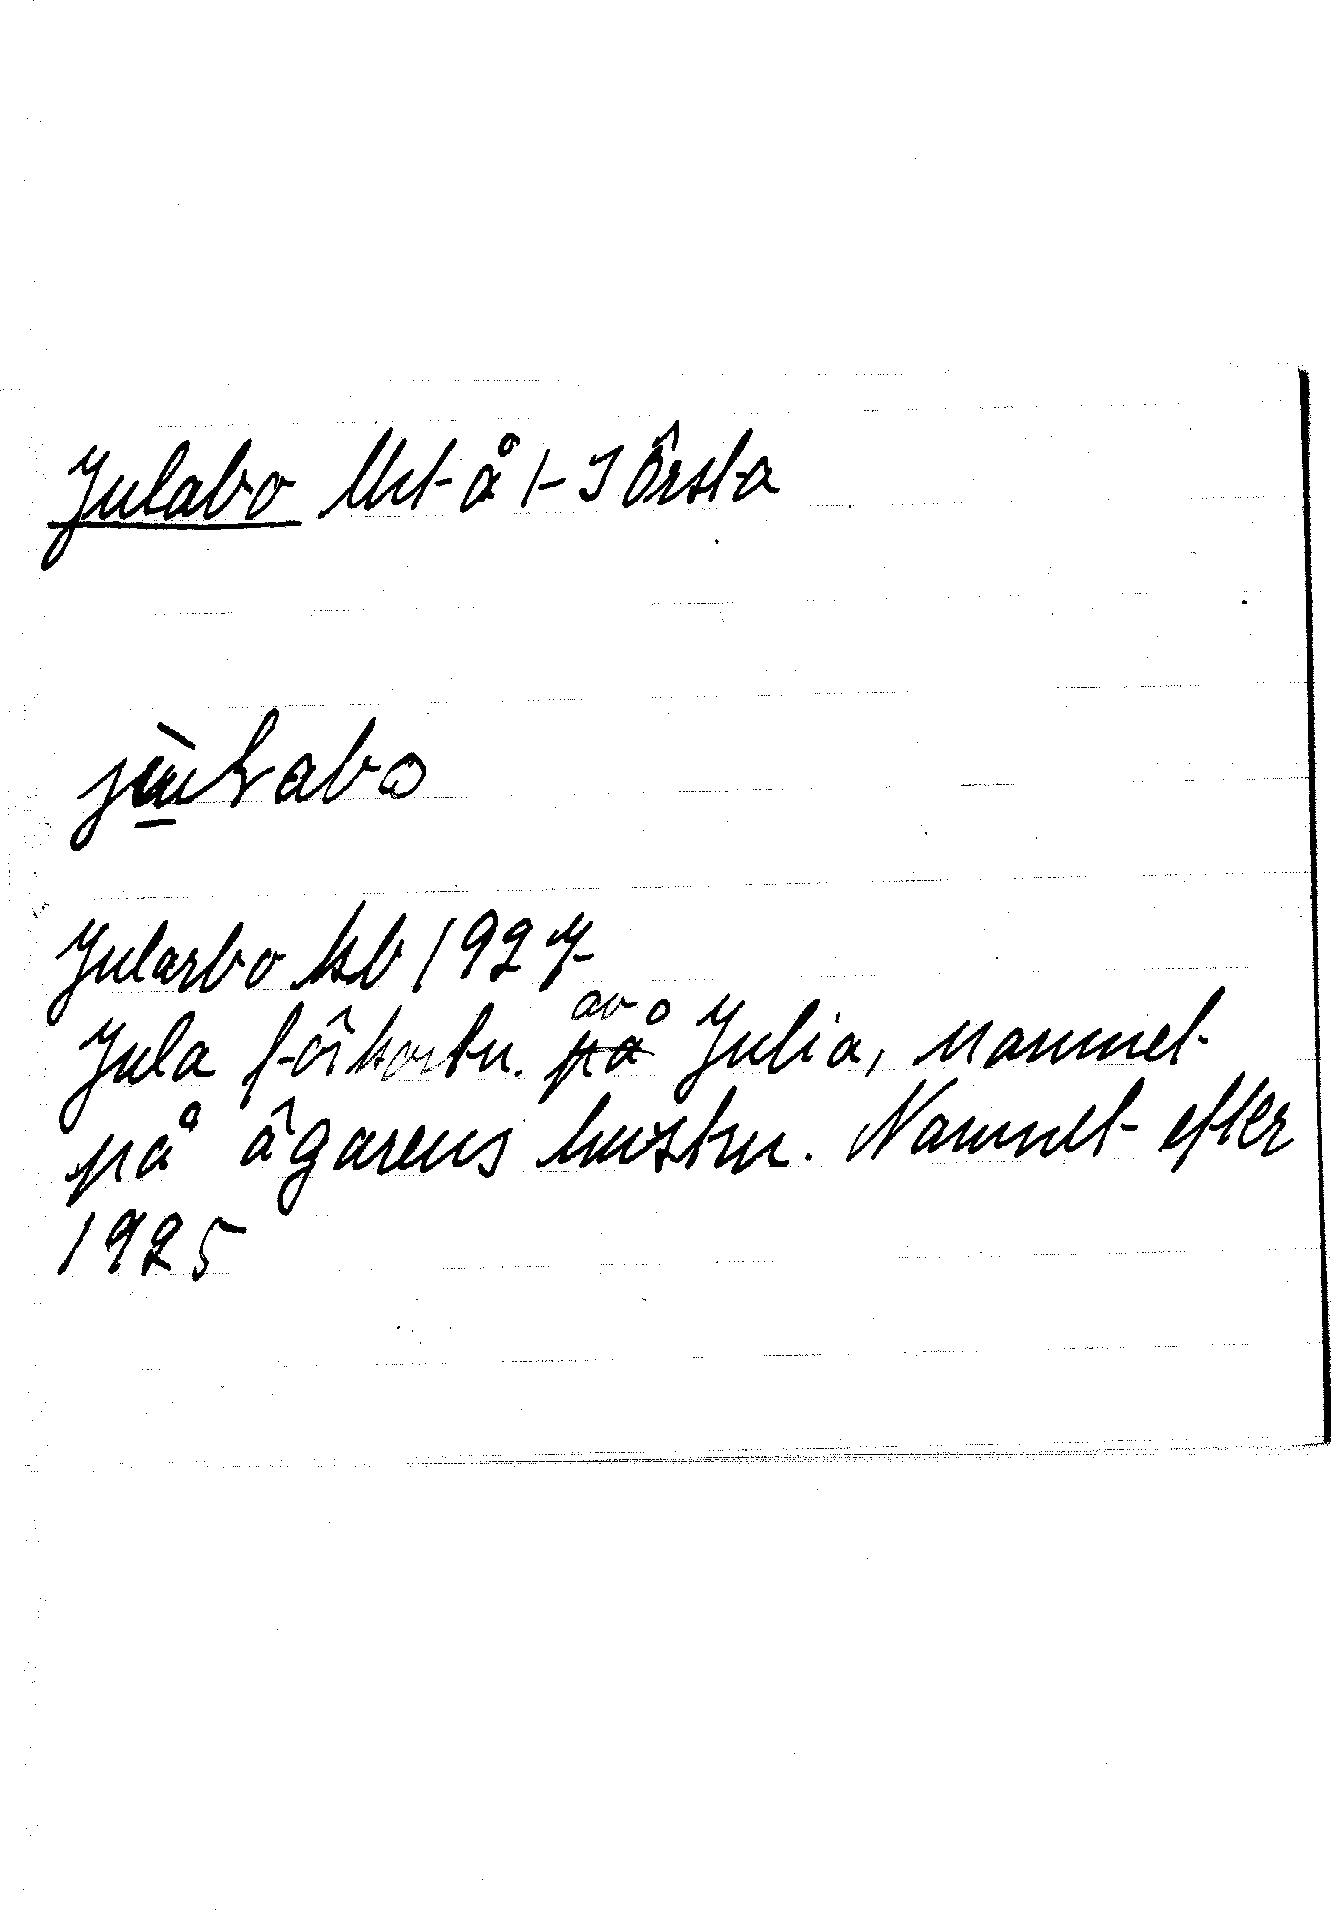 Julabo Ust å 1-3 Örsta
jùlabo
Jularbo kb 1927
Jula förkortn. av Julia, namnet
på ägarens hustru. Namnet efter
1925